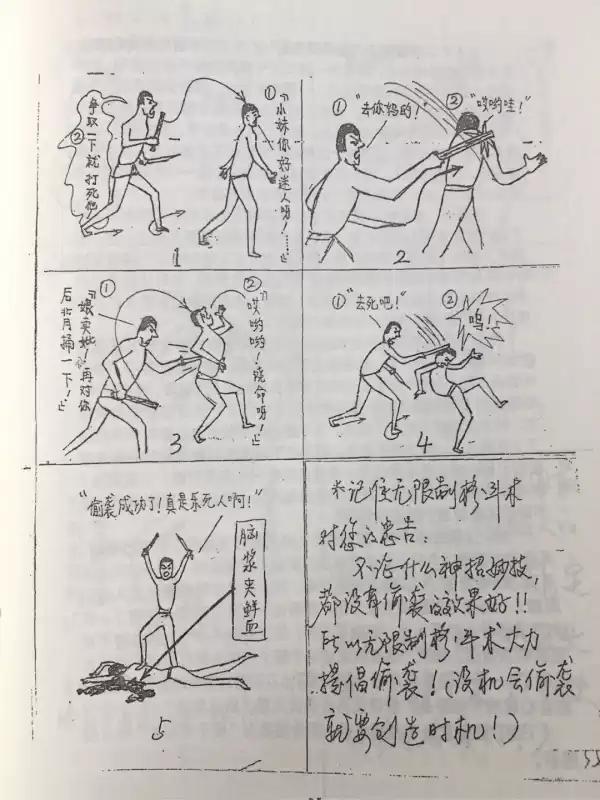 ①“小妹你好迷人呀！……”
②争取一下就打死他
1
①“去你妈的！”
②“哎哟哇！”
2
①
卖妣！再对你
后背捅一下！”
②“哎哟哟！饶命呀！”
3
①“去死吧！”
②呜！
4
“偷袭成功了！真是乐死人啊！”
脑浆夹鲜血
5
※记住无限制格斗术
对您的忠告：
不论什么神招妙技，
都没有偷袭的效果好！！
所以无限制格斗术大力
提倡偷袭！（没机会偷袭
就要创造时机！）
55